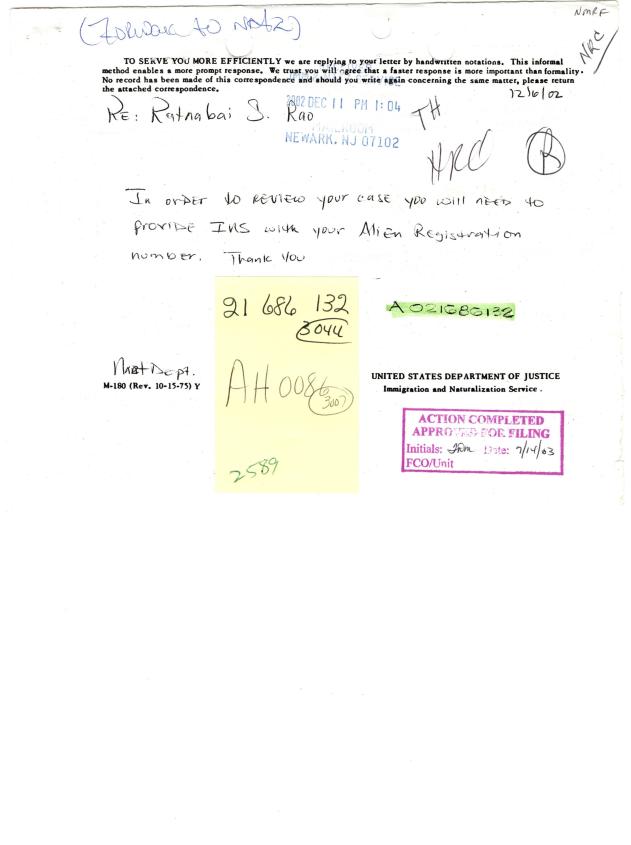 NMRF
(Forward to NDAZ)
NRC
TO SERVE YOU MORE EFFICIENTLY we are replying to your letter by handwritten notations. This informal
method enables a more prompt response. We trust you will agree that a faster response is more important than formality.
No record has been made of this correspondence and should you write again concerning the same matter, please return
the attached correspondence.
12/6/02
RE: Ratnabai S. Rao
2002 DEC 11 PM 1:04
MAILROOM
NEWARK, NJ 07102
TH
HRC
B
In order to review your case you will need to
provide INS with your Alien Registration
number. Thank you
21 686 132
3044
A 021686132
AH 0086
3007
2589
Natz Dept.
M-180 (Rev. 10-15-75) Y
UNITED STATES DEPARTMENT OF JUSTICE
Immigration and Naturalization Service.
ACTION COMPLETED
APPROVED FOR FILING
Initials: Date: 7/14/03
FCO/Unit